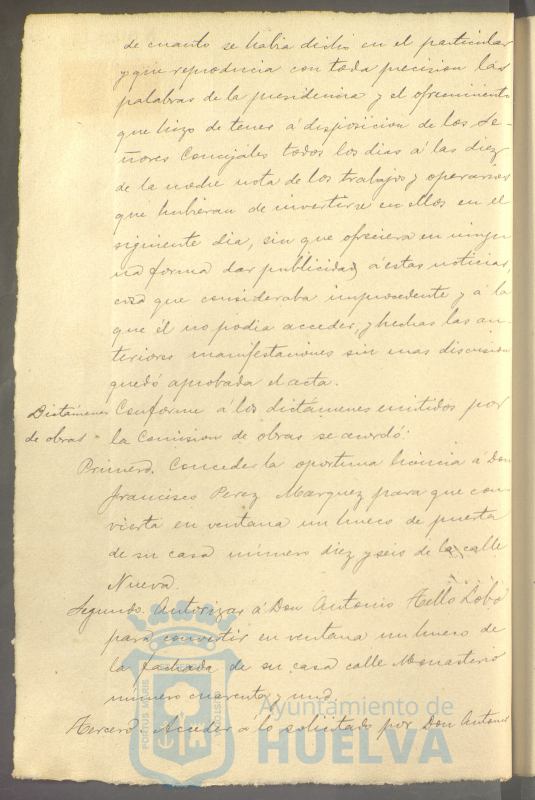 de cuanto se habia dicho en el particular
y que reproducia con toda precision las
palabras de la presidencia y el ofrecimiento
que hizo de tener á disposicion de los Se-
ñores Concejales todos los dias á las diez
de la noche nota de los trabajos y operarios
que hubieran de invertirse en ellos en el
siguiente dia, sin que ofreciera en ningu
na forma dar publicidad á estas noticias,
cosa que consideraba improcedente y á la
que él no podia acceder, y hechas las an-
teriores manifestaciones sin mas discusion
quedó aprobada el acta.
Dictámenes de obras - Conforme á los dictámenes emitidos por
la Comision de obras se acordó:
Primero. Conceder la oportuna licencia á Don
Francisco Perez Marquez para que con-
vierta en ventana un hueco de puerta
de su casa número diez y seis de la calle
Nueva.
Segundo. Autorizar á Don Antonio Tello Lobo
para convertir en ventana un hueco de
la fachada de su casa calle Monasterio
número cuarenta y uno.
Tercero. Acceder á lo solicitado por Don Antonio
Ayuntamiento de
HUELVA
PORTUS MARIS